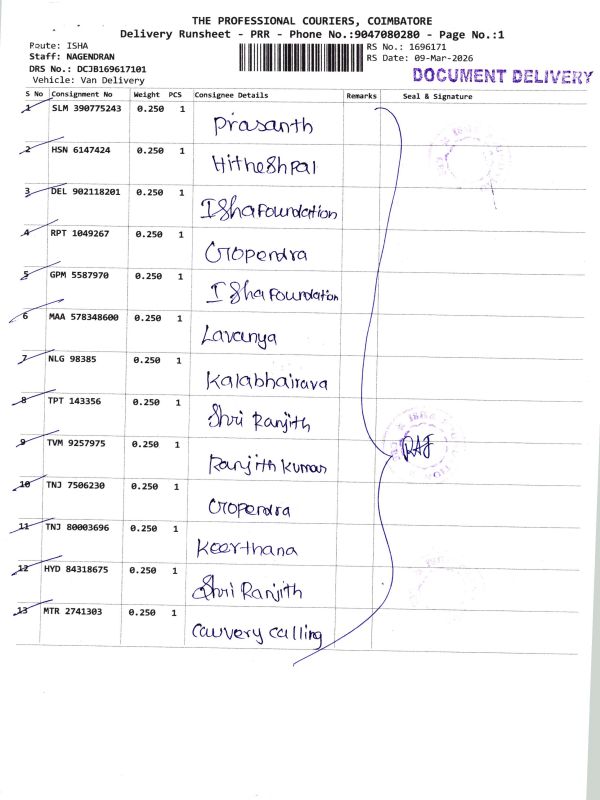 THE PROFESSIONAL COURIERS, COIMBATORE
Delivery Runsheet - PRR - Phone No.:9047080280 - Page No.:1
Route: ISHA
RS No.: 1696171
Staff: NAGENDRAN
RS Date: 09-Mar-2026
DRS No.: DCJB169617101
DOCUMENT DELIVERY
Vehicle: Van Delivery
S No Consignment No Weight PCS Consignee Details Remarks Seal & Signature
1 SLM 390775243 0.250 1 Prasanth
2 HSN 6147424 0.250 1 Hitheshpal
3 DEL 902118201 0.250 1 Isha Foundation
4 RPT 1049267 0.250 1 Gropendra
5 GPM 5587970 0.250 1 Isha Foundation
6 MAA 578348600 0.250 1 Lavanya
7 NLG 98385 0.250 1 Kalabhairava
8 TPT 143356 0.250 1 Shri Ranjith
9 TVM 9257975 0.250 1 Ranjith Kumar
10 TNJ 7506230 0.250 1 Gropendra
11 TNJ 80003696 0.250 1 Keerthana
12 HYD 84318675 0.250 1 Shri Ranjith
13 MTR 2741303 0.250 1 Cauvery calling
RAJ